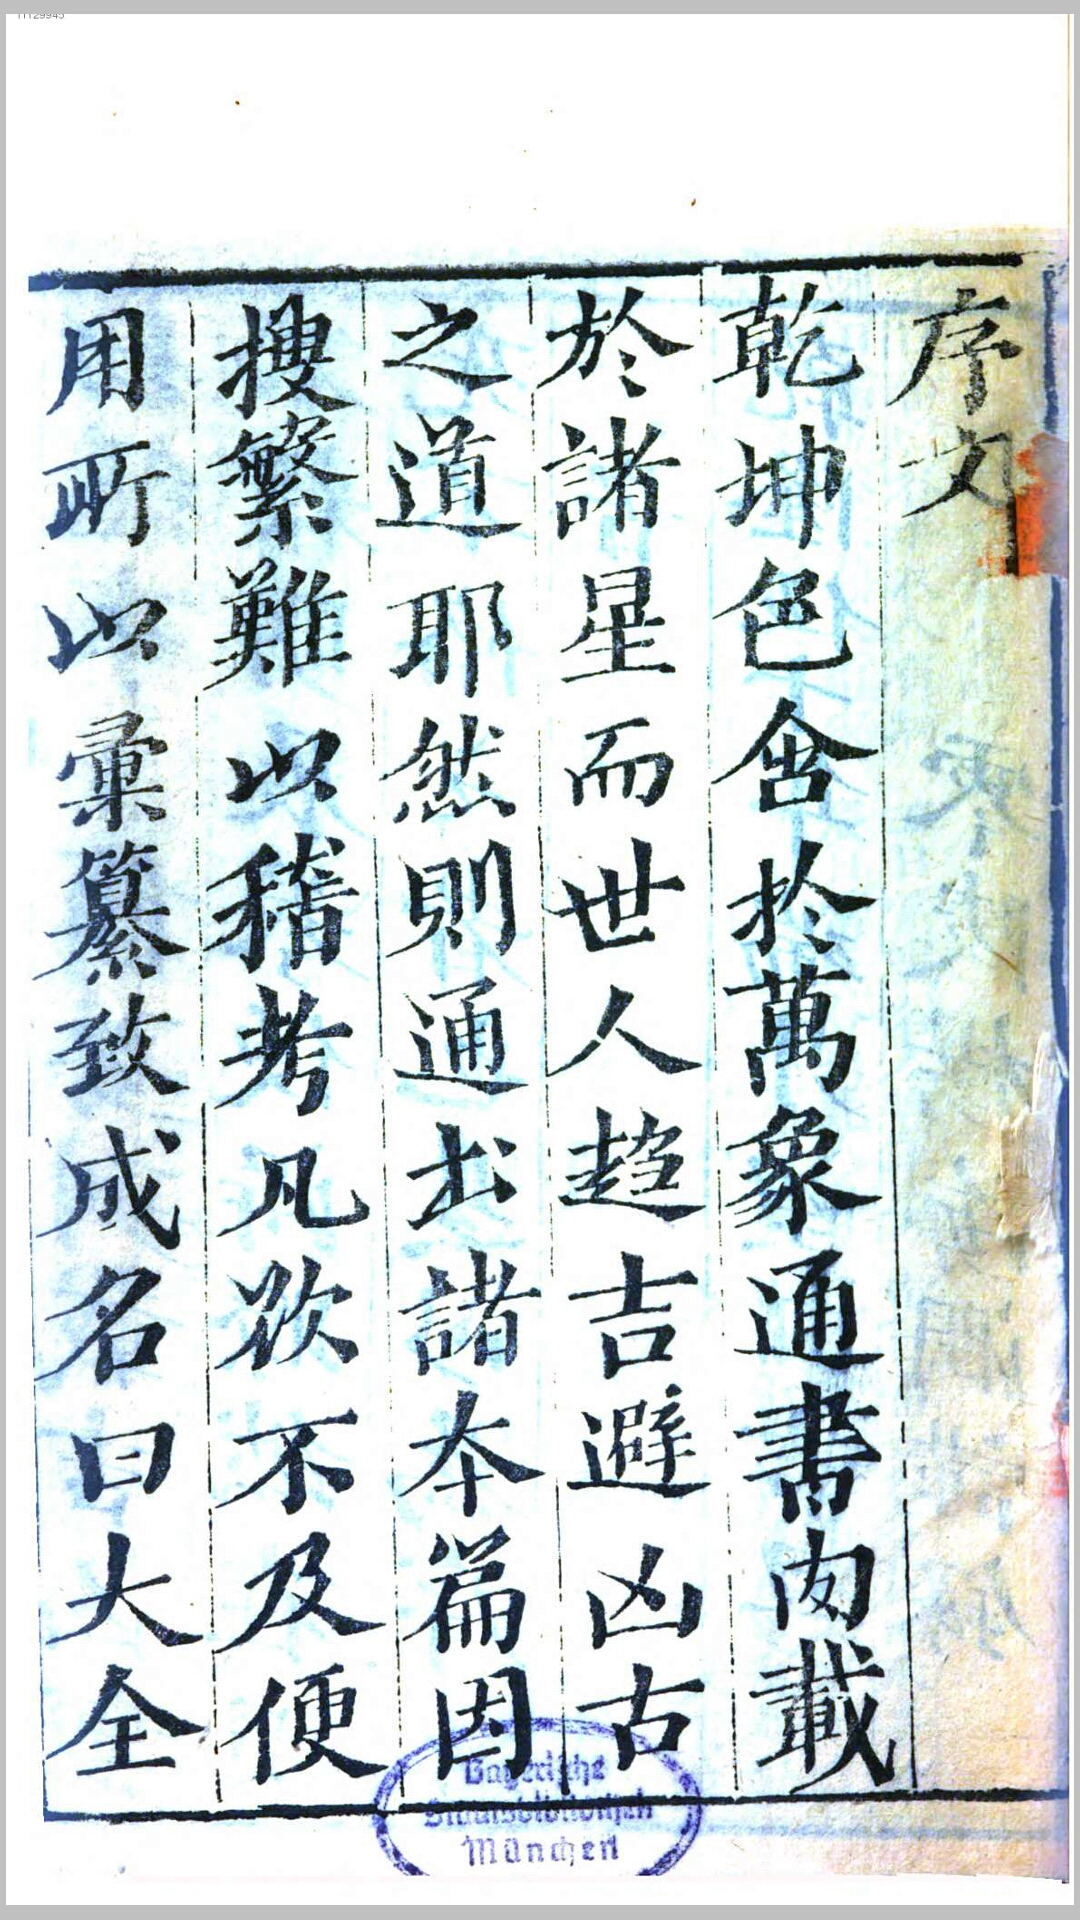 序文
乾坤色含於萬象通書內載
於諸星而世人趋吉避凶古
之道耶然則通书諸本篇因
搜繁難以稽考凡欲不及便
用所以彙纂致成名曰大全
Bayerische
Staatsbibliothek
München